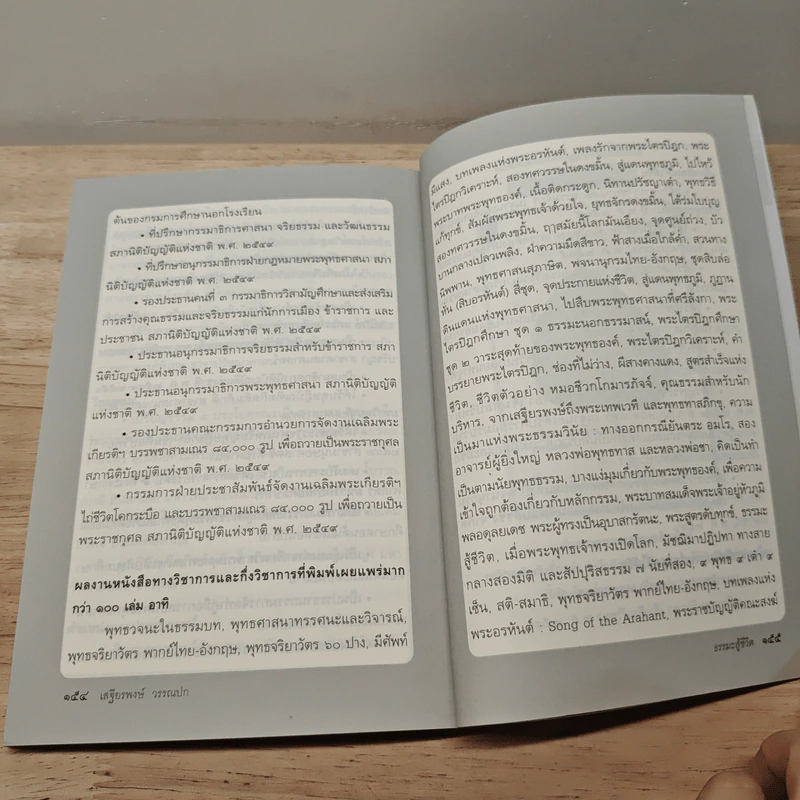 ต้นของกรมการศึกษานอกโรงเรียน
• ที่ปรึกษากรรมาธิการศาสนา จริยธรรม และวัฒนธรรม
สภานิติบัญญัติแห่งชาติ พ.ศ. ๒๕๔๙
• ที่ปรึกษาอนุกรรมาธิการฝ่ายกฎหมายพระพุทธศาสนา สภา
นิติบัญญัติแห่งชาติ พ.ศ. ๒๕๔๙
• รองประธานคนที่ ๓ กรรมาธิการวิสามัญศึกษาและส่งเสริม
การสร้างคุณธรรมและจริยธรรมแก่นักการเมือง ข้าราชการ และ
ประชาชน สภานิติบัญญัติแห่งชาติ พ.ศ. ๒๕๔๙
• ประธานอนุกรรมาธิการจริยธรรมสำหรับข้าราชการ สภา
นิติบัญญัติแห่งชาติ พ.ศ. ๒๕๔๙
• ประธานอนุกรรมาธิการพระพุทธศาสนา สภานิติบัญญัติ
แห่งชาติ พ.ศ. ๒๕๔๙
• รองประธานคณะกรรมการอำนวยการจัดงานเฉลิมพระ
เกียรติฯ บรรพชาสามเณร ๘๔,๐๐๐ รูป เพื่อถวายเป็นพระราชกุศล
สภานิติบัญญัติแห่งชาติ พ.ศ. ๒๕๔๙
• กรรมการฝ่ายประชาสัมพันธ์จัดงานเฉลิมพระเกียรติฯ
ไถ่ชีวิตโคกระบือ และบรรพชาสามเณร ๘๔,๐๐๐ รูป เพื่อถวายเป็น
พระราชกุศล สภานิติบัญญัติแห่งชาติ พ.ศ. ๒๕๔๙
ผลงานหนังสือทางวิชาการและกึ่งวิชาการที่พิมพ์เผยแพร่มาก
กว่า ๑๐๐ เล่ม อาทิ
พุทธวจนะในธรรมบท, พุทธศาสนาทรรศนะและวิจารณ์,
พุทธจริยาวัตร พากย์ไทย-อังกฤษ, พุทธจริยาวัตร ๖๐ ปาง, มีศัพท์
๑๕๔ เสฐียรพงษ์ วรรณปก
มีแสง, บทเพลงแห่งพระอรหันต์, เพลงรักจากพระไตรปิฎก, พระ
ไตรปิฎกวิเคราะห์, สองทศวรรษในดงขมิ้น, สู่แดนพุทธภูมิ, ไปไหว้
พระบาทพระพุทธองค์, เนื้อติดกระดูก, นิทานปรัชญาเต๋า, พุทธวิธี
แก้ทุกข์, สัมผัสพระพุทธเจ้าด้วยใจ, ยุทธจักรดงขมิ้น, ใต้ร่มใบบุญ
สองทศวรรษในดงขมิ้น, ฤๅสมัยนี้โลกมันเอียง, จุดศูนย์ถ่วง, บัว
บานกลางเปลวเพลิง, ฝ่าความมืดสีขาว, ฟ้าสางเมื่อใกล้ค่ำ, สวนทาง
นิพพาน, พุทธศาสนสุภาษิต, พจนานุกรมไทย-อังกฤษ, ชุดสิบล่อ
หั่น (สิบอรหันต์) สี่ชุด, จุดประกายแห่งชีวิต, สู่แดนพุทธภูมิ, ภูฏาน
ดินแดนแห่งพุทธศาสนา, ไปสืบพระพุทธศาสนาที่ศรีลังกา, พระ
ไตรปิฎกศึกษา ชุด ๑ ธรรมะนอกธรรมาสน์, พระไตรปิฎกศึกษา
ชุด ๒ วาระสุดท้ายของพระพุทธองค์, พระไตรปิฎกวิเคราะห์, คำ
บรรยายพระไตรปิฎก, ช่องที่ไม่ว่าง, ผีสางคางแดง, สูตรสำเร็จแห่ง
ชีวิต, ชีวิตตัวอย่าง หมอชีวกโกมารภัจจ์, คุณธรรมสำหรับนัก
บริหาร, จากเสฐียรพงษ์ถึงพระเทพเวที และพุทธทาสภิกขุ, ความ
เป็นมาแห่งพระธรรมวินัย : ทางออกกรณียันตระ อมโร, สอง
อาจารย์ผู้ยิ่งใหญ่ หลวงพ่อพุทธทาส และหลวงพ่อชา, คิดเป็นทำ
เป็นตามนัยพุทธธรรม, บางแง่มุมเกี่ยวกับพระพุทธองค์, เพื่อความ
เข้าใจถูกต้องเกี่ยวกับหลักกรรม, พระบาทสมเด็จพระเจ้าอยู่หัวภูมิ
พลอดุลยเดช พระผู้ทรงเป็นอุบาสกรัตนะ, พระสูตรดับทุกข์, ธรรมะ
สู้ชีวิต, เมื่อพระพุทธเจ้าทรงเปิดโลก, มัชฌิมาปฏิปทา ทางสาย
กลางสองมิติ และสัปปุริสธรรม ๗ นัยที่สอง, ๙ พุทธ ๙ เต๋า ๙
เซ็น, สติ-สมาธิ, พุทธจริยาวัตร พากย์ไทย-อังกฤษ, บทเพลงแห่ง
พระอรหันต์ : Song of the Arahant, พระราชบัญญัติคณะสงฆ์
ธรรมะสู้ชีวิต ๑๕๕